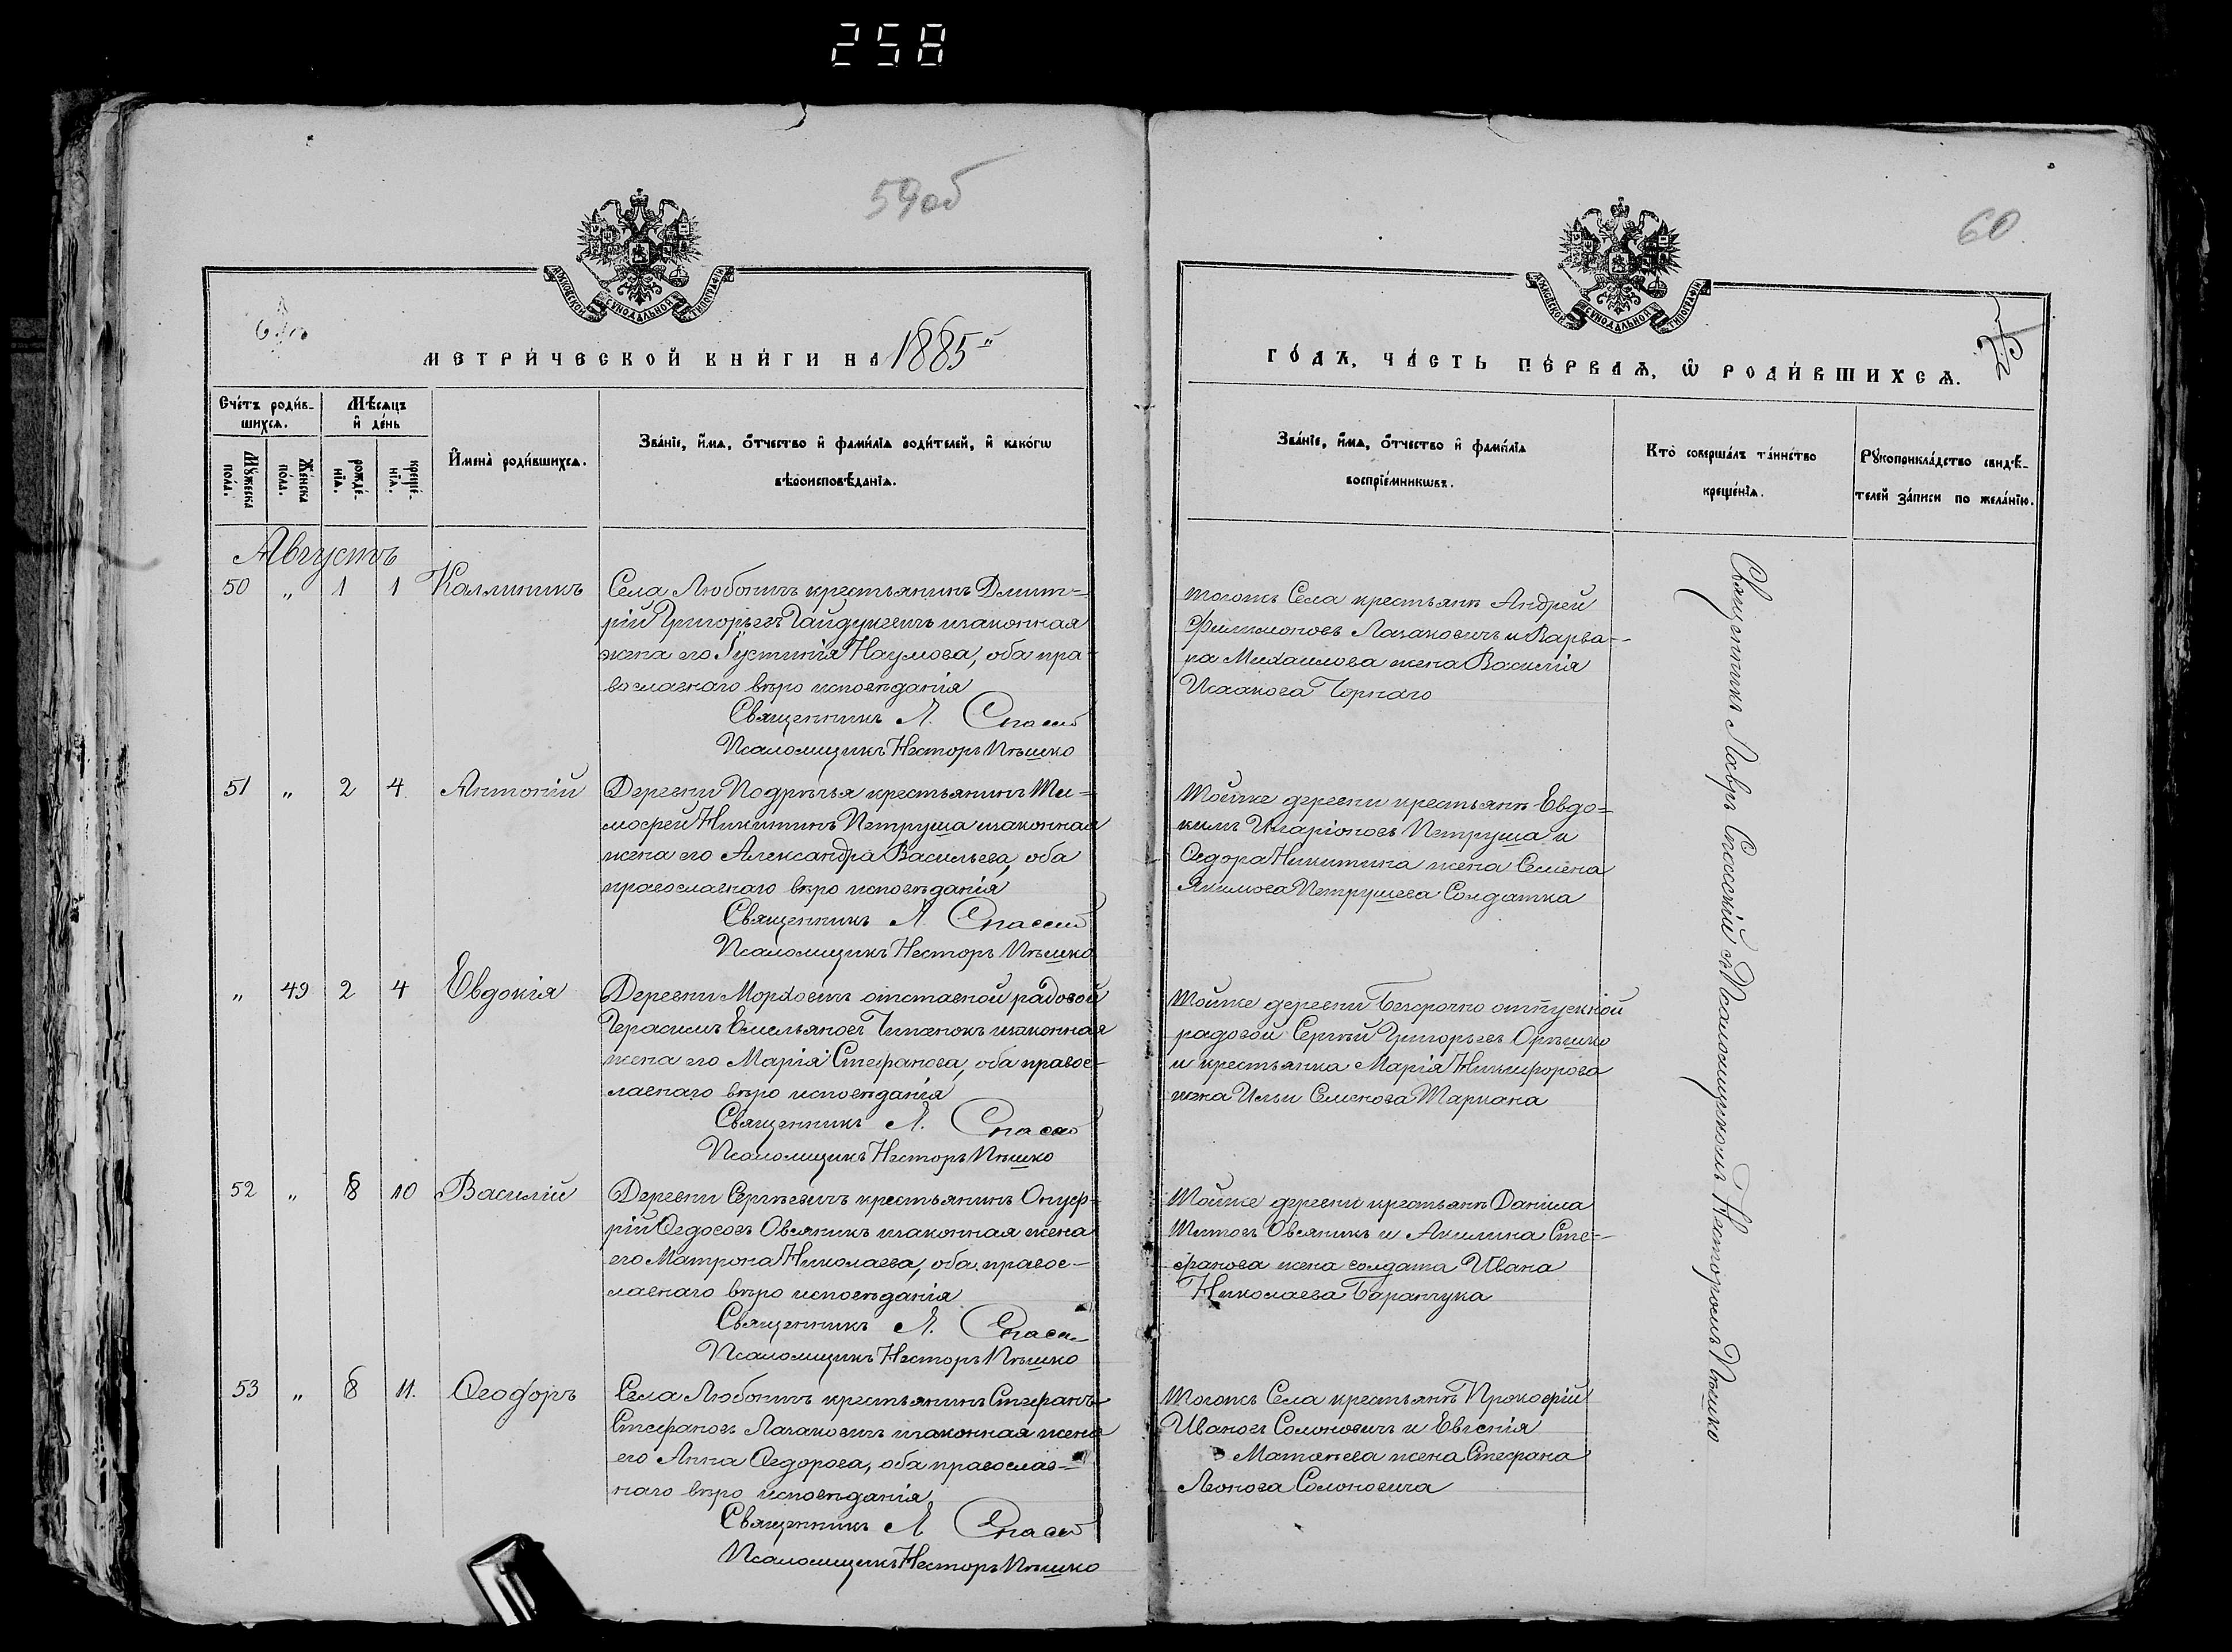 258
59об
60
МОСКОВСКОЙ СѴНОДАЛЬНОЙ ТИПОГРАФІИ
МОСКОВСКОЙ СѴНОДАЛЬНОЙ ТИПОГРАФІИ
МЕТРИ́ЧЕСКОЙ КНИ́ГИ НА 1885"
ГО́ДЪ, ЧА́СТЬ ПЕ́РВАѦ, Ѡ҆ РОДИ́ВШИХСѦ.
Сче́тъ роди́в-
шихсѧ.
Мꙋ́жеска по́ла.
Же́нска по́ла.
Мѣ́сѧцъ и҆ де́нь
рожде́-нїѧ.
креще́-нїѧ.
И҆мена̀ роди́вшихсѧ.
Зва́нїе, и҆́мѧ, ѻ҆́тчество и҆ фами́лїѧ роди́телей, и҆ како́гѡ
вѣроисповѣ́данїѧ.
Зва́нїе, и҆́мѧ, ѻ҆́тчество и҆ фами́лїѧ
воспрїе́мникѡвъ.
Кто̀ соверша́лъ та́инство
креще́нїѧ.
Рꙋкоприкла́дство свидѣ́-
телей за́писи по жела́нїю.
Августъ
50 " 1 1 Каллиникъ
Села Любонич крестьянинъ Дмит=
рій Григорьевъ Гайдукевичъ изаконная
жена его Іустинія Наумова, оба пра-
вославнаго вѣро исповѣданія
Священникъ Л. Спасскій
Псаломщикъ Несторъ Пѣшко
тогожъ Села крестьянъ Андрей
Филимоновъ Лазаковичъ и Варва-
ра Михаилова жена Василія
Исаакова Чорнаго
51 " 2 4 Антоній
Деревни Подрѣчья крестьянинъ Ти=
мофей Никитинъ Петруша изаконная
жена его Александра Васильева, оба
православнаго вѣро исповѣданія
Священникъ Л Спасскій
Псаломщикъ Несторъ Пѣшко
Тойже деревни крестьянъ Евдо=
кимъ Иларіоновъ Петруша и
Ѳедора Никитина жена Семена
Якимова Петрушева Солдатка
" 49 2 4 Евдокія
Деревни Морховичъ отставной рядовой
Герасимъ Емельяновъ изаконная
жена его Марія Стефанова, оба правос-
лавнаго вѣро исповѣданія
Священникъ Л. Спасскій
Псаломщикъ Несторъ Пѣшко
Тойже деревни Безсрочно отпускной
рядовой Сергѣй Григорьевъ Орѣшко
и крестьянка Марія Никифорова
жена Ильи Семенова Таркана
52 " 8 10 Василій
Деревни Сергѣевичъ крестьянинъ Онуф-
рій Ѳедосовъ Овсяникъ изаконная жена
его Матрона Николаева, оба правос-
лавнаго вѣро исповѣданія
Священникъ Л. Спасскій
Псаломщикъ Несторъ Пѣшко
Тойже деревни крестьянъ Данила
Титовъ Овсяникъ и Акилина Сте-
фанова жена солдата Ивана
Николаева Баранчука
53 " 8 11. Ѳеодоръ
Села Любоничъ крестьянинъ Стефанъ
Стефановъ Лазаковичъ изаконная жена
его Анна Ѳедорова, оба православ-
наго вѣро исповѣданія
Священникъ Л Спасскій
Псаломщикъ Несторъ Пѣшко
Тогожъ Села крестьянъ Прокофій
Ивановъ Солоновичъ и Евгенія
Матвѣева жена Стефана
Леонова Солоновича
Священникъ Лавръ Спасскій съ Псаломщикомъ Несторомъ Пѣшко